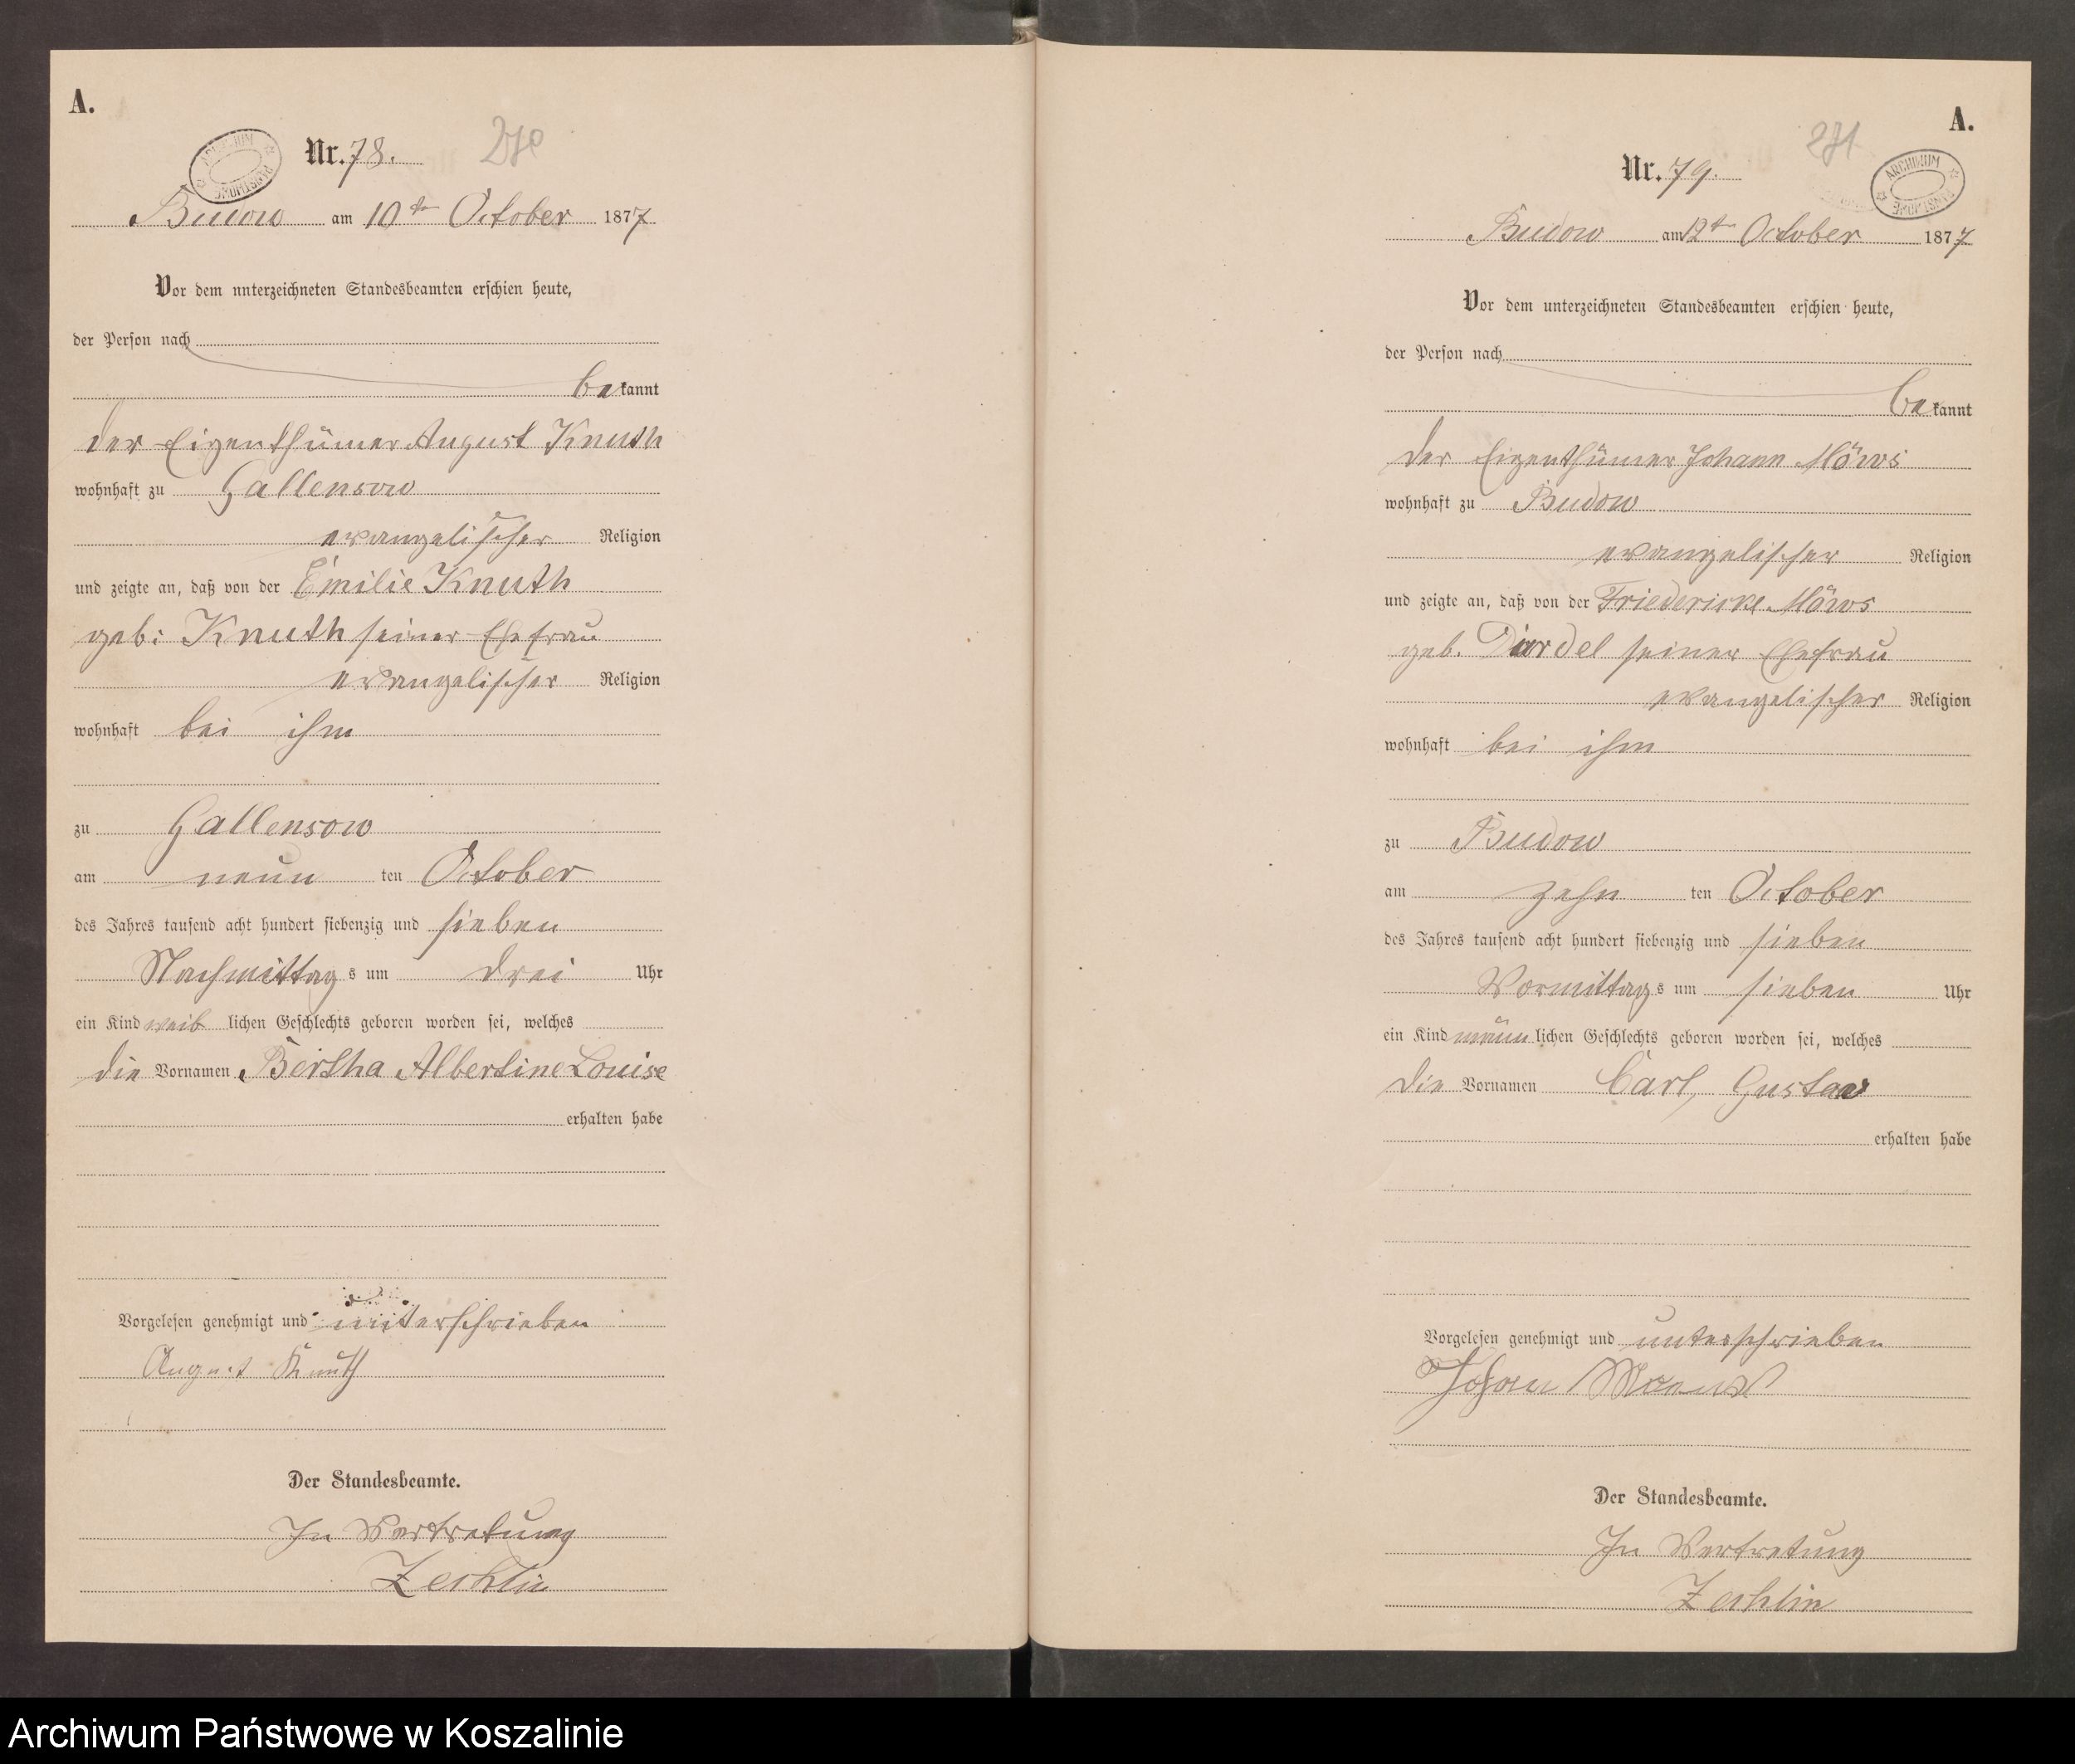 A.
Nr. 78.
270
ARCHIWUM PAŃSTWOWE
Budow am 10t October 1877
Vor dem unterzeichneten Standesbeamten erschien heute,
der Person nach
bekannt
der Eigenthümer August Knuth
wohnhaft zu Gallensow
evangelischer Religion
und zeigte an, daß von der Emilie Knuth
geb: Knuth seiner Ehefrau
evangelischer Religion
wohnhaft bei ihm
zu Gallensow
am neun ten October
des Jahres tausend acht hundert siebenzig und sieben
Nachmittags um drei Uhr
ein Kind weiblichen Geschlechts geboren worden sei, welches
die Vornamen Bertha Albertine Louise
erhalten habe
Vorgelesen genehmigt und unterschrieben
August Knuth
Der Standesbeamte.
In Vertretung
Zechlin
A.
Nr. 79.
271
ARCHIWUM PAŃSTWOWE
Budow am 12t October 1877
Vor dem unterzeichneten Standesbeamten erschien heute,
der Person nach
bekannt
der Eigenthümer Johann Möws
wohnhaft zu Budow
evangelischer Religion
und zeigte an, daß von der Friedericke Möws
geb. seiner Ehefrau
evangelischer Religion
wohnhaft bei ihm
zu Budow
am zehn ten October
des Jahres tausend acht hundert siebenzig und sieben
Vormittags um sieben Uhr
ein Kind männlichen Geschlechts geboren worden sei, welches
die Vornamen Carl, Gustav
erhalten habe
Vorgelesen genehmigt und unterschrieben
Johan
Der Standesbeamte.
In Vertretung
Zechlin
Archiwum Państwowe w Koszalinie